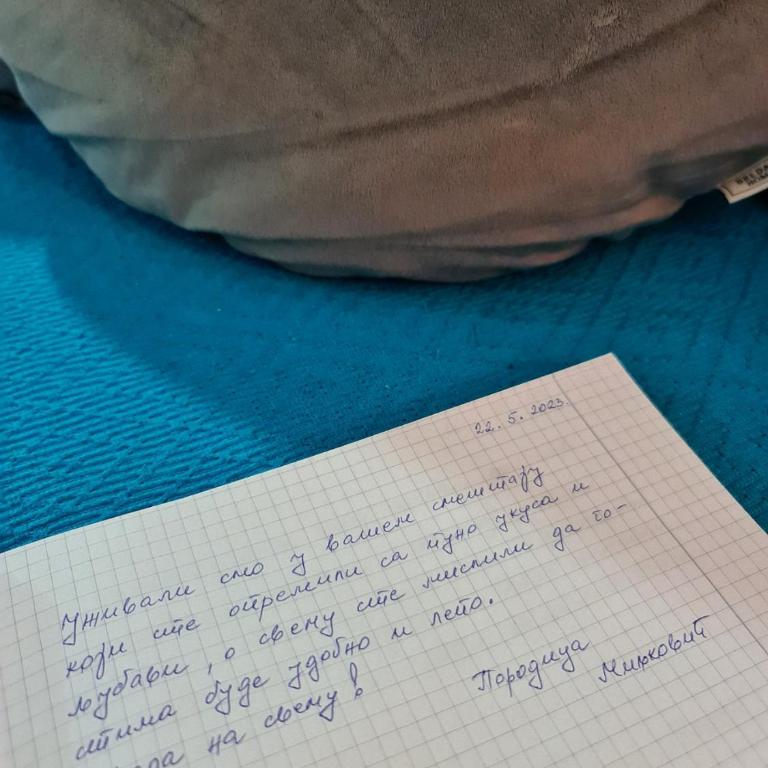 22. 5. 2023.
Уживали смо у вашем смештају
који сте опремили са пуно укуса и
љубави, о свему сте мислили да го-
стима буде удобно и лепо.
на свему!
Породица